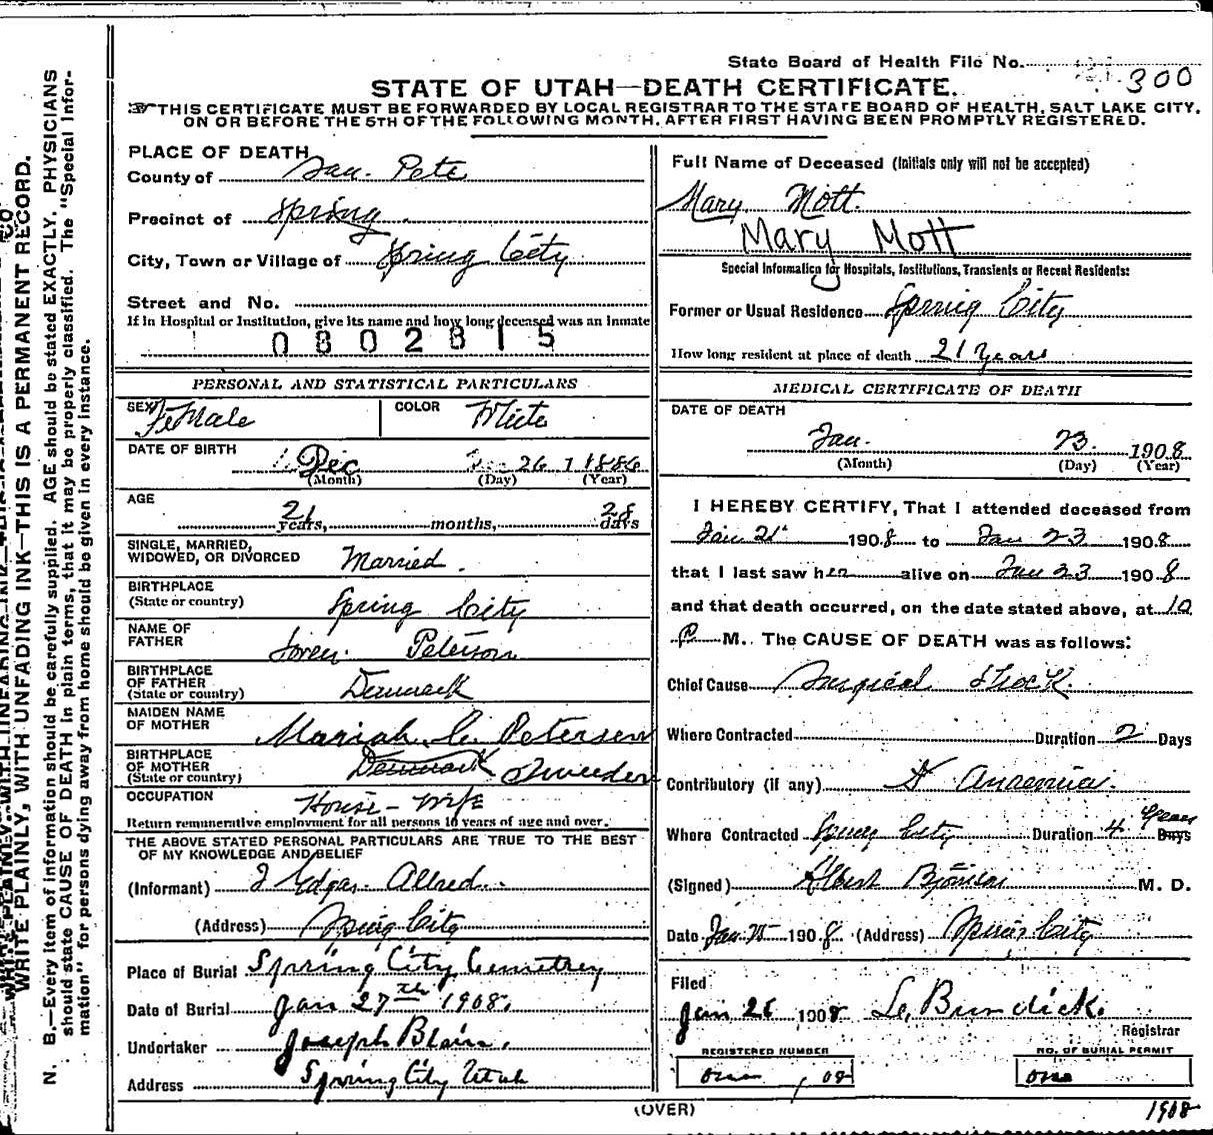 State Board of Health File No.
300
STATE OF UTAH—DEATH CERTIFICATE.
THIS CERTIFICATE MUST BE FORWARDED BY LOCAL REGISTRAR TO THE STATE BOARD OF HEALTH, SALT LAKE CITY,
ON OR BEFORE THE 5TH OF THE FOLLOWING MONTH, AFTER FIRST HAVING BEEN PROMPTLY REGISTERED.
WRITE PLAINLY, WITH UNFADING INK—THIS IS A PERMANENT RECORD.
N. B.—Every item of information should be carefully supplied. AGE should be stated EXACTLY. PHYSICIANS
should state CAUSE OF DEATH in plain terms, that it may be properly classified. The "Special Infor-
mation" for persons dying away from home should be given in every instance.
PLACE OF DEATH
County of San Pete
Precinct of Spring
City, Town or Village of Spring City
Street and No.
If in Hospital or Institution, give its name and how long deceased was an Inmate
0802815
PERSONAL AND STATISTICAL PARTICULARS
SEX FeMale COLOR White
DATE OF BIRTH
Dec 26 1886
(Month) (Day) (Year)
AGE
21 years, months, 28 days
SINGLE, MARRIED,
WIDOWED, OR DIVORCED Married.
BIRTHPLACE
(State or country) Spring City
NAME OF
FATHER Soren Peterson
BIRTHPLACE
OF FATHER
(State or country) Denmark
MAIDEN NAME
OF MOTHER Mariah C. Petersen
BIRTHPLACE
OF MOTHER
(State or country) Denmark Sweeden
OCCUPATION House-wife
Return remunerative employment for all persons 10 years of age and over.
THE ABOVE STATED PERSONAL PARTICULARS ARE TRUE TO THE BEST
OF MY KNOWLEDGE AND BELIEF
(Informant) J Edgar Allred
(Address) Spring City
Place of Burial Spring City Cemetrey
Date of Burial Jan 27th 1908.
Undertaker Joseph Blain.
Address Spring City Utah
Full Name of Deceased (Initials only will not be accepted)
Mary Mott.
Mary Mott
Special Information for Hospitals, Institutions, Transients or Recent Residents:
Former or Usual Residence Spring City
How long resident at place of death 21 Years
MEDICAL CERTIFICATE OF DEATH
DATE OF DEATH
Jan. 23. 1908
(Month) (Day) (Year)
I HEREBY CERTIFY, That I attended deceased from
Jan 21 1908 to Jan 23 1908
that I last saw her alive on Jan 23 1908
and that death occurred, on the date stated above, at 10
P M. The CAUSE OF DEATH was as follows:
Chief Cause Surgical Shock
Where Contracted Duration 2 Days
Contributory (if any) Anaemia.
Where Contracted Spring City Duration 4 Years Days
(Signed) Albert Bjornson M. D.
Date Jan 25 1908 (Address) Spring City
Filed
Jan 1908 Burdick.
Registrar
REGISTERED NUMBER
one, 08
NO. OF BURIAL PERMIT
one
(OVER)
1908